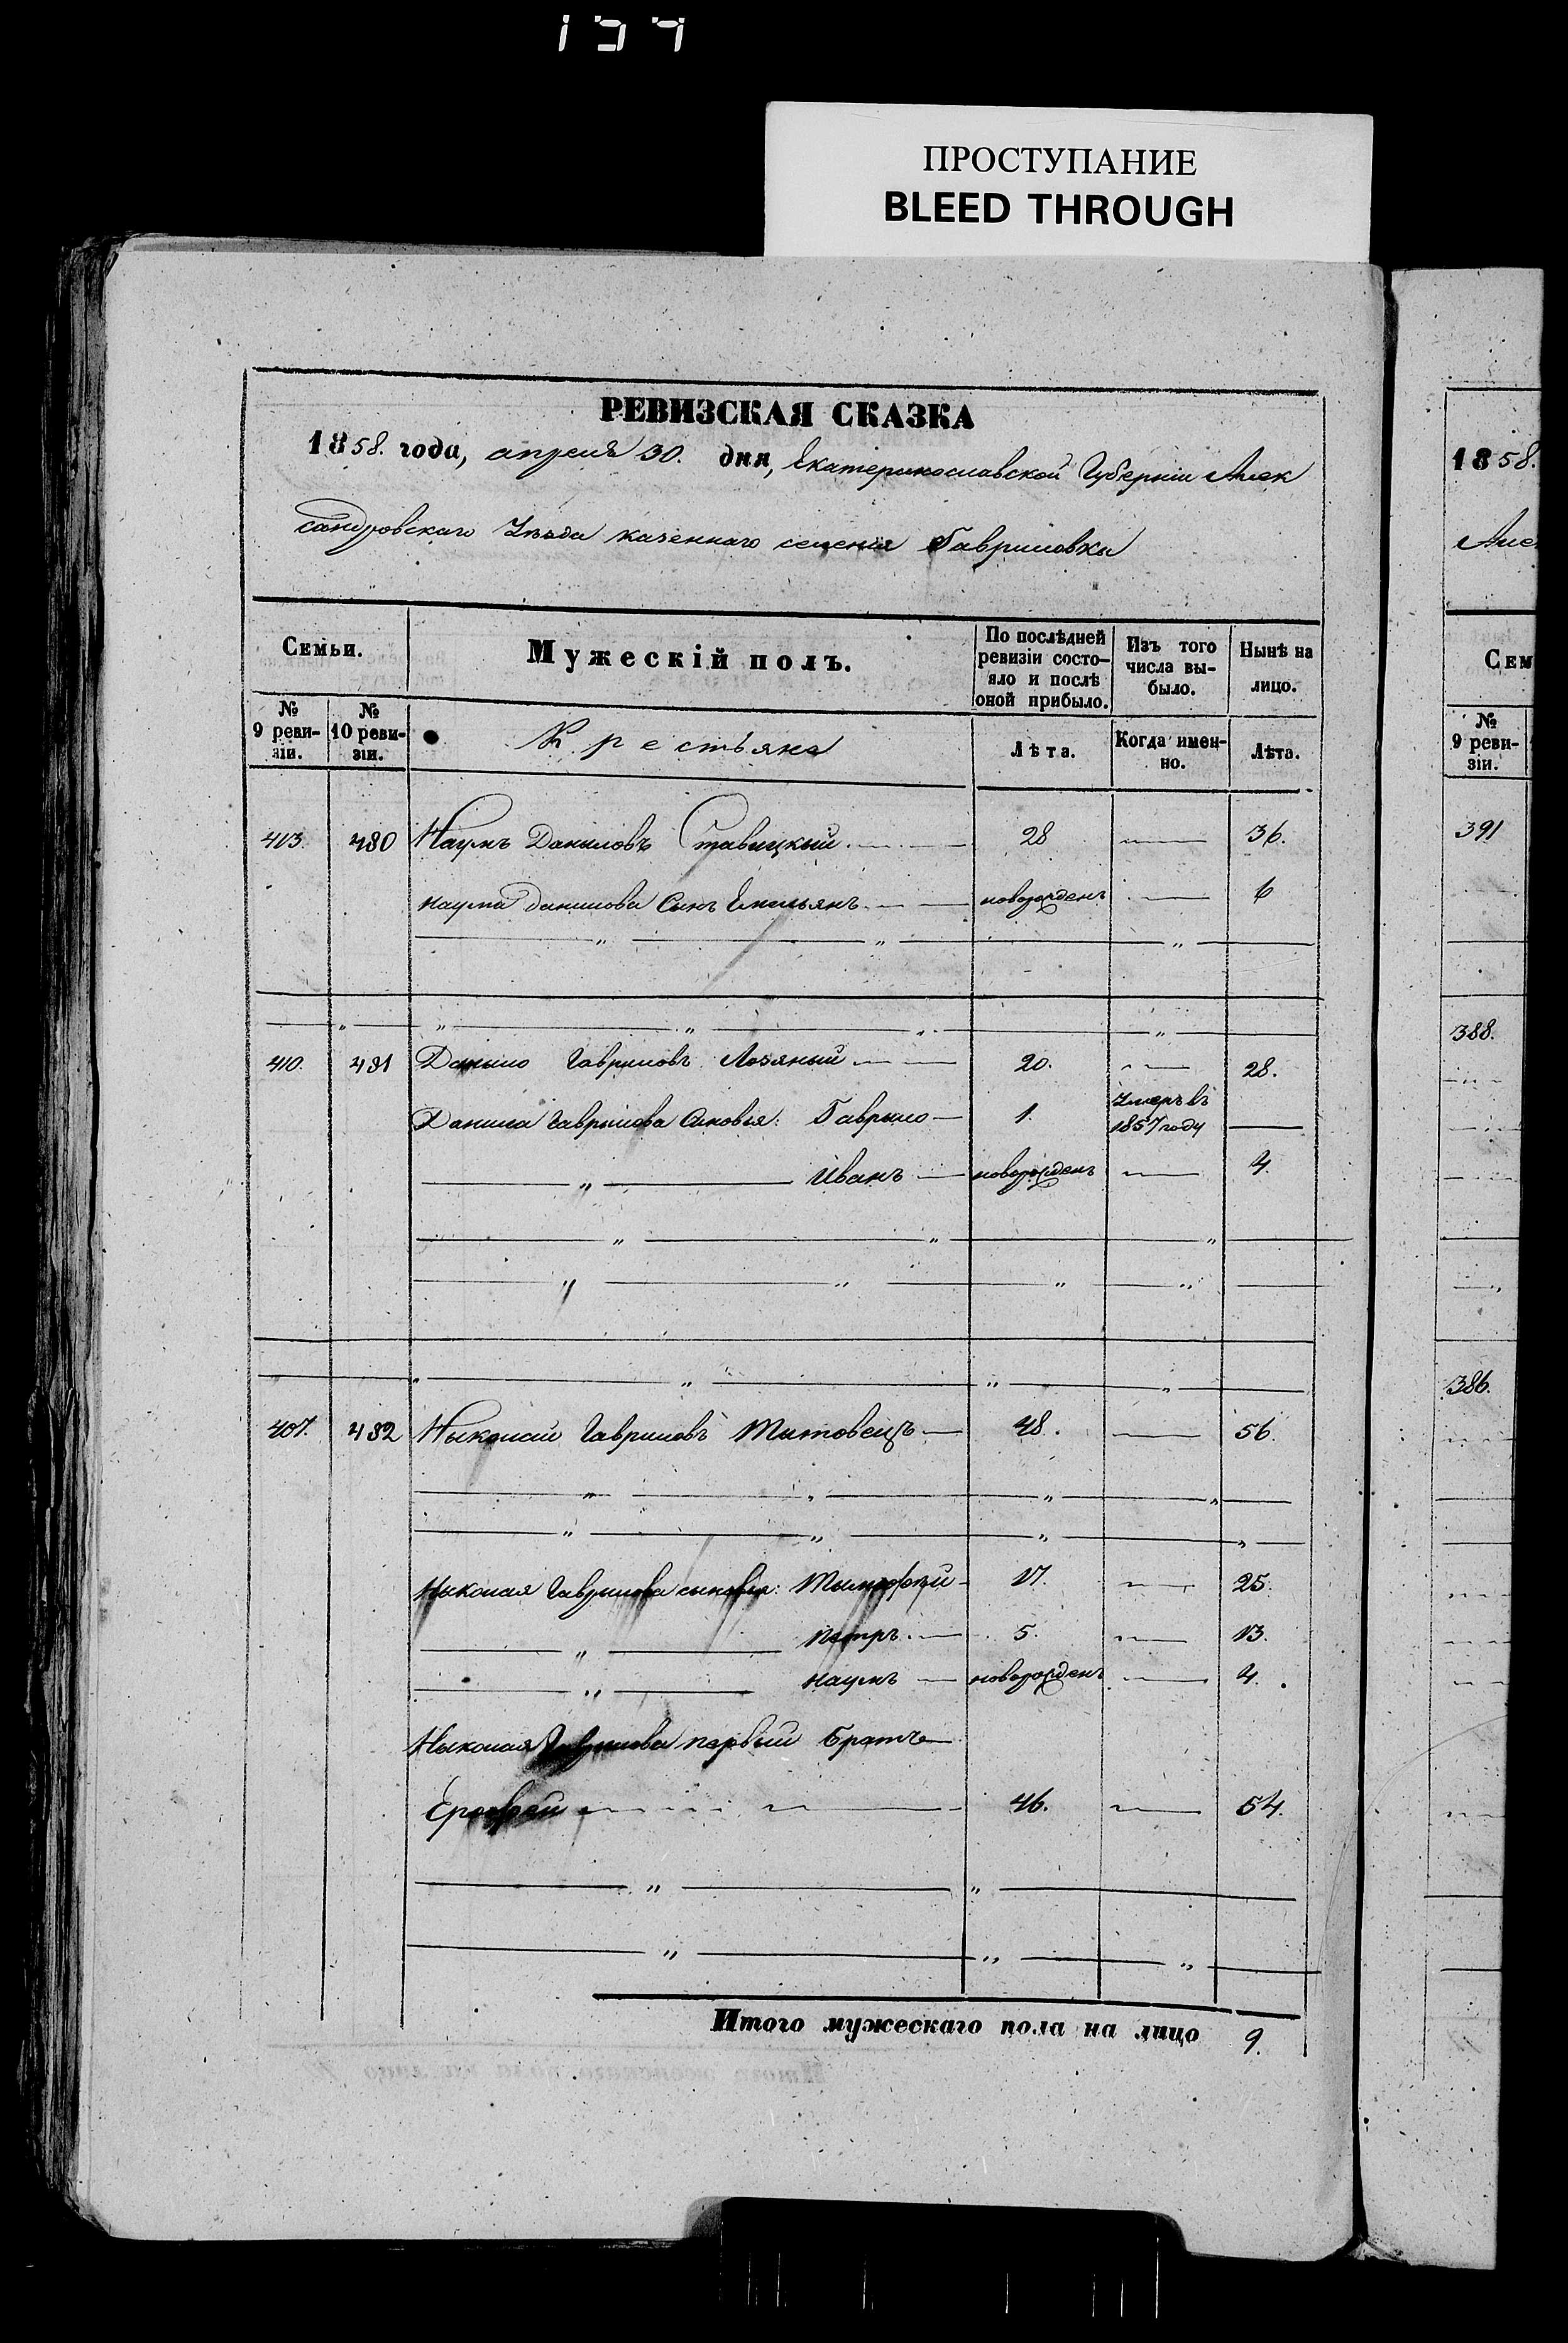 ПРОСТУПАНИЕ
BLEED THROUGH
РЕВИЗСКАЯ СКАЗКА
1858. года, апреля 30. дня, Екатеринославской Губерніи Алек
сандровскаго Уѣзда казеннаго селенія Гавриловки
Семьи.
Мужескій полъ.
По послѣдней ревизіи состояло и послѣ оной прибыло.
Изъ того числа выбыло.
Нынѣ на лицо.
№ 9 ревизіи.
№ 10 ревизіи.
Крестьяне
Лѣта.
Когда именно.
Лѣта.
413. 480 Наумъ Даниловъ Ставицкий 28 — 36.
Наума Данилова сынъ Емельянъ новорожденъ — 6
410. 481 Данило Гавриловъ Лозяный 20. — 28.
Данила Гаврилова сыновья: Гаврыло 1. Умеръ въ 1857 году —
" Иванъ новорожденъ — 4.
407. 482 Николай Гавриловъ Титовецъ 48. — 56.
Николая Гаврилова сыновья: Тимофей 17. — 25.
" Петръ 5. — 13.
" Наумъ новорожденъ — 4.
Николая Гаврилова первый братъ
Ерофей 46. — 54.
Итого мужескаго пола на лицо 9.
1858.
Сем
№ 9 ревизіи.
391
388.
386.